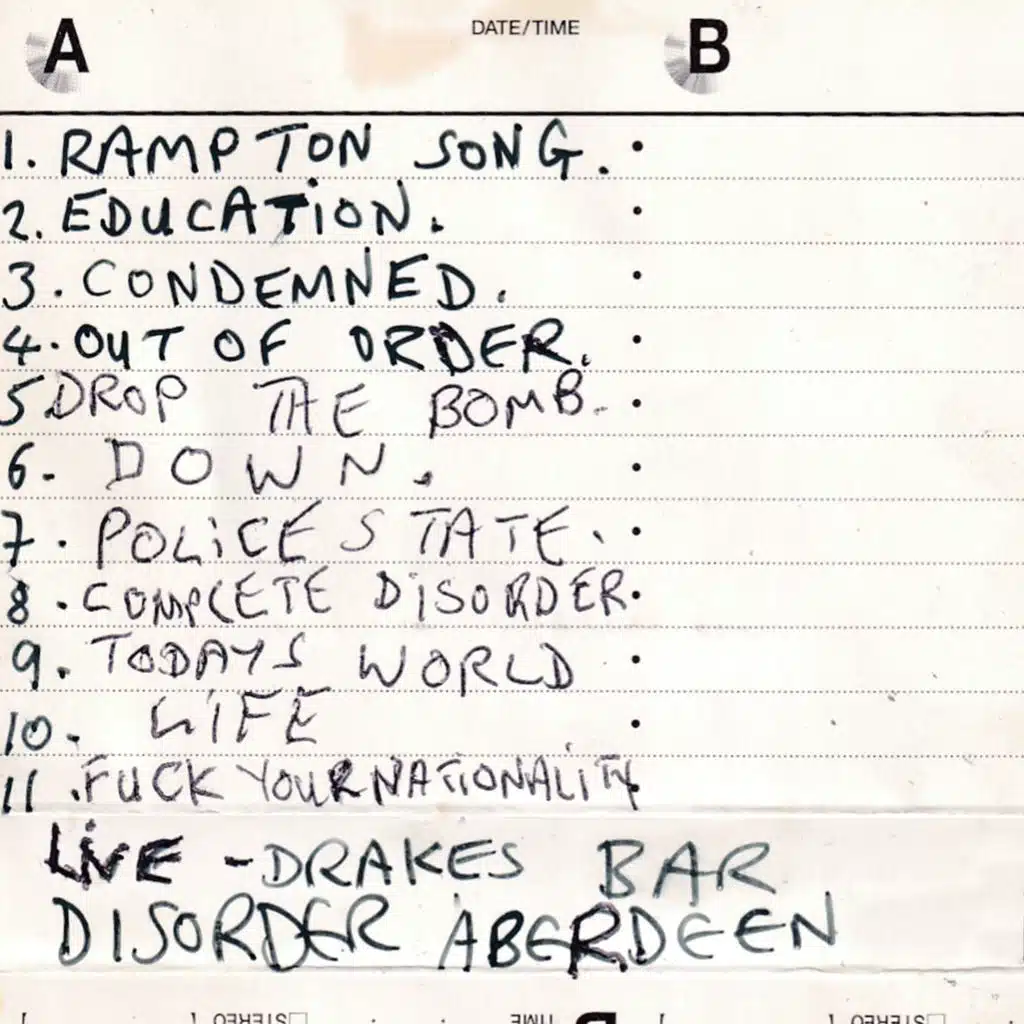 A DATE/TIME B
1. RAMPTON SONG.
2. EDUCATION.
3. CONDEMNED.
4. OUT OF ORDER.
5 DROP THE BOMB.
6. DOWN.
7. POLICE STATE.
8. COMPLETE DISORDER.
9. TODAYS WORLD
10. LIFE
11. FUCK YOUR NATIONALITY
LIVE - DRAKES BAR
DISORDER ABERDEEN
STEREO TIME B STEREO